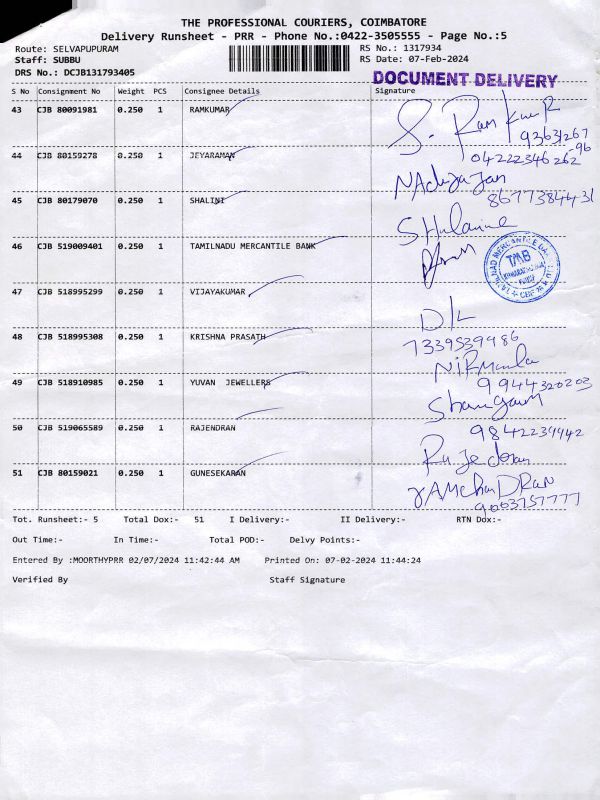 THE PROFESSIONAL COURIERS, COIMBATORE
Delivery Runsheet - PRR - Phone No.:0422-3505555 - Page No.:5
Route: SELVAPUPURAM RS No.: 1317934
Staff: SUBBU RS Date: 07-Feb-2024
DRS No.: DCJB131793405 DOCUMENT DELIVERY
S No Consignment No Weight PCS Consignee Details Signature
43 CJB 80091981 0.250 1 RAMKUMAR S. Ram kumar
44 CJB 80159278 0.250 1 JEYARAMAN
45 CJB 80179070 0.250 1 SHALINI 8677384431
46 CJB 519009401 0.250 1 TAMILNADU MERCANTILE BANK
TMB
47 CJB 518995299 0.250 1 VIJAYAKUMAR
D/L
48 CJB 518995308 0.250 1 KRISHNA PRASATH 7339539486
Nirmala
49 CJB 518910985 0.250 1 YUVAN JEWELLERS 9944320203
50 CJB 519065589 0.250 1 RAJENDRAN
51 CJB 80159021 0.250 1 GUNESEKARAN
9003757777
Tot. Runsheet:- 5 Total Dox:- 51 I Delivery:- II Delivery:- RTN Dox:-
Out Time:- In Time:- Total POD:- Delvy Points:-
Entered By :MOORTHYPRR 02/07/2024 11:42:44 AM Printed On: 07-02-2024 11:44:24
Verified By Staff Signature